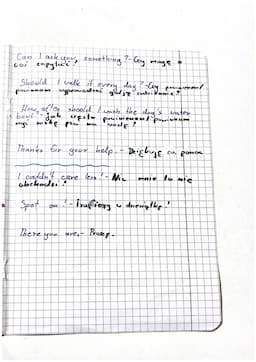 Can I ask you, something? - Czy mogę o
coś zapytać?
Should I walk it every day? - Czy powinienem/
powinnam wyprowadzać go/ją codziennie?
How often should I wash the dog's water
bowl? - Jak często powinienem/powinnam
myć miskę psa na wodę?
Thanks for your help. - Dziękuję za pomoc
I couldn't care less! - Nic mnie to nie
obchodzi!
Spot on! - Trafiony w dziesiątkę!
There you are. - Proszę.